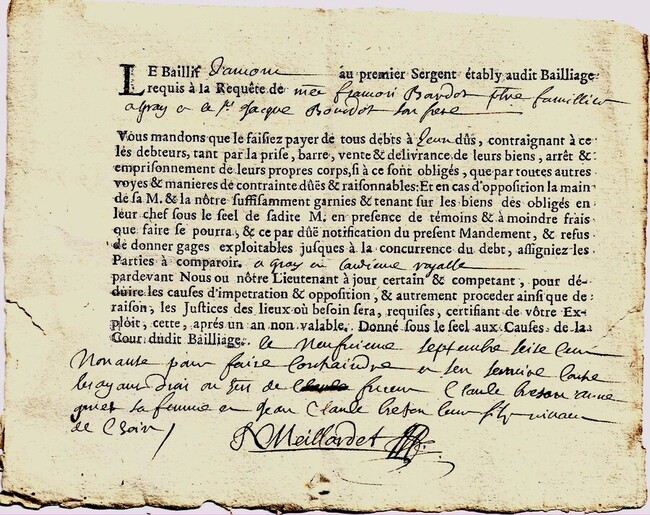 LE Baillif Damont au premier Sergent étably audit Bailliage
requis à la Requête de Mre francois Bardot ptre famillier
a gray et le Sr Jacque Bourdot son frere
Vous mandons que le faisiez payer de tous debts à leur dûs, contraignant à ce
les debteurs, tant par la prise, barre, vente & delivrance de leurs biens, arrêt &
emprisonnement de leurs propres corps, si à ce sont obligés, que par toutes autres
voyes & manieres de contrainte dûës & raisonnables: Et en cas d'opposition la main
de sa M. & la nôtre suffisamment garnies & tenant sur les biens des obligés en
leur chef sous le seel de sadite M. en presence de témoins & à moindre frais
que faire se pourra, & ce par duë notification du present Mandement, & refus
de donner gages exploitables jusques à la concurrence du debt, assigniez les
Parties à comparoir. a gray en laudience royalle
pardevant Nous ou nôtre Lieutenant à jour certain & competant, pour dé-
duire les causes d'impetration & opposition, & autrement proceder ainsi que de
raison, les Justices des lieux où besoin sera, requises, certifiant de vôtre Ex-
ploit, cette, aprés un an non valable. Donné sous le seel aux Causes de la
Cour dudit Bailliage. le Neufvieme septembre seize cent
Nonante pour faire contraindre
les ayans droi de Claude breson
sa femme et Jean Claude breson leur filz
de Choix
Meillardet